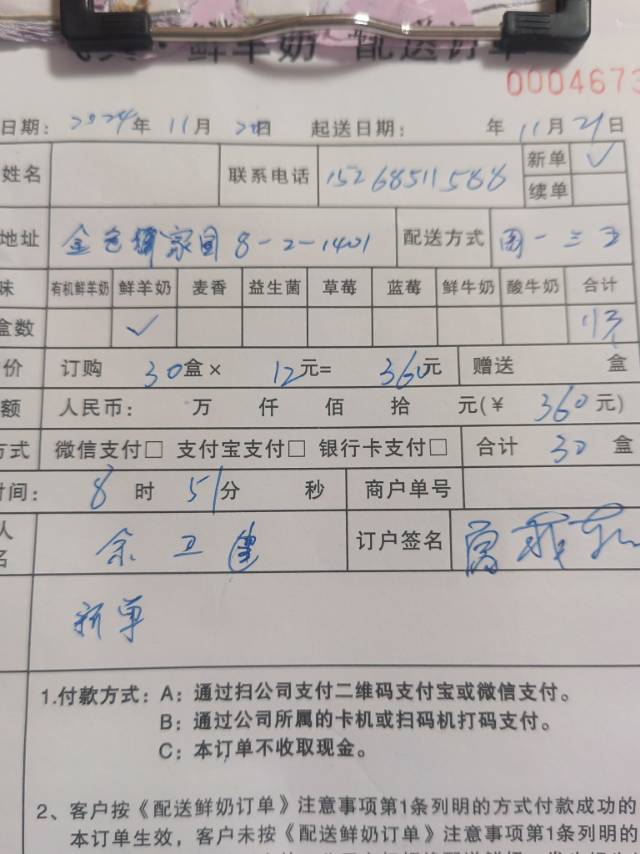 鲜羊奶 配送订单
0004673
日期: 2024年 11月 20日 起送日期: 年 11月 21日
姓名 联系电话 15268511588 新单 ✓
续单
地址 金色 家园 8-2-1401 配送方式 周一三五
味 有机鲜羊奶 鲜羊奶 麦香 益生菌 草莓 蓝莓 鲜牛奶 酸牛奶 合计
盒数 ✓
价 订购 30盒× 12元= 360元 赠送 盒
额 人民币: 万 仟 佰 拾 元(¥ 360元)
方式 微信支付□ 支付宝支付□ 银行卡支付□ 合计 30 盒
时间: 8 时 51分 秒 商户单号
人
名 余卫健 订户签名
新单
1.付款方式: A: 通过扫公司支付二维码支付宝或微信支付。
B: 通过公司所属的卡机或扫码机打码支付。
C: 本订单不收取现金。
2、客户按《配送鲜奶订单》注意事项第1条列明的方式付款成功的
本订单生效，客户未按《配送鲜奶订单》注意事项第1条列明